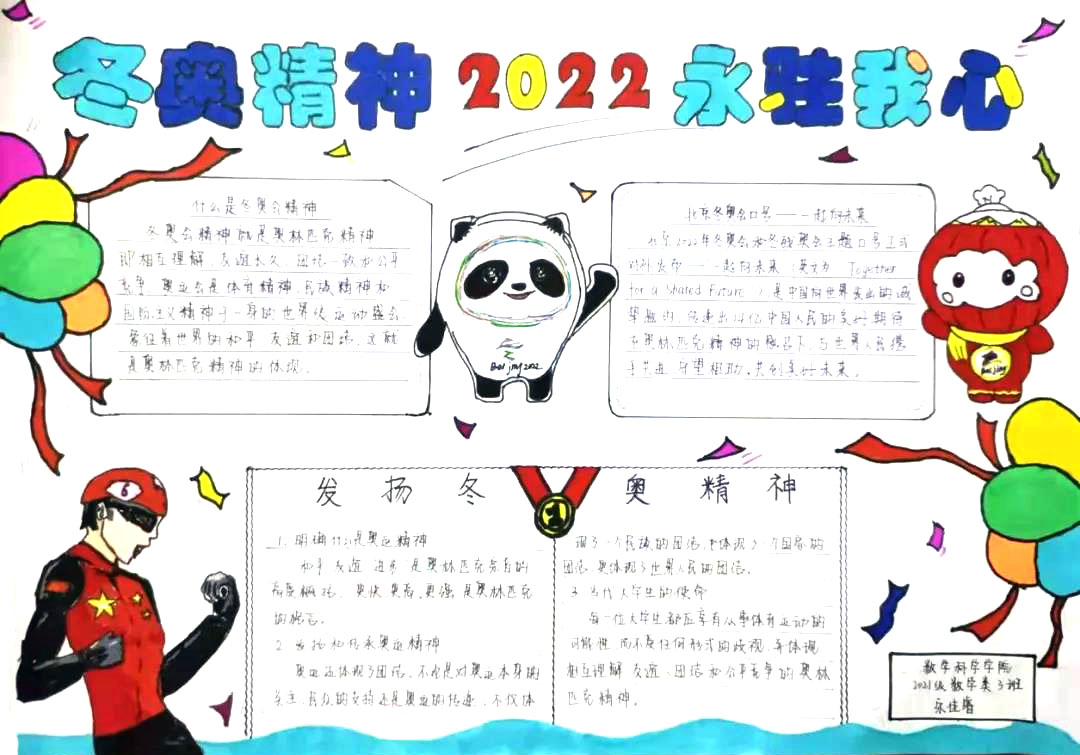 冬奥精神2022永驻我心
什么是冬奥会精神
冬奥会精神就是奥林匹克精神
即相互理解、友谊长久、团结一致和公平
竞争。奥运会是体育精神、民族精神和
国际主义精神于一身的世界级运动盛会
象征着世界的和平、友谊和团结,这就
是奥林匹克精神的体现。
Beijing 2022
北京冬奥会口号——一起向未来
北京2022年冬奥会和冬残奥会主题口号正式
对外发布——一起向未来(英文为 Together
for a Shared Future。)是中国向世界发出的诚
挚邀约,传递出14亿中国人民的美好期待
在奥林匹克精神的感召下,与世界人民携
手共进、守望相助、共创美好未来。
Beijing
6
发扬冬奥精神
1
1. 明确什么是奥运精神
和平、友谊、进步是奥林匹克宗旨的
高度概括,更快更高,更强是奥林匹克
的格言。
2. 发扬和传承奥运精神
奥运还体现了团结,不仅是对奥运本身的
关注,民众的支持还是奥运的传递,不仅体
现了一个民族的团结,也体现了一个国家的
团结,更体现了世界人民的团结。
3. 当代大学生的使命
每一位大学生都应享有从事体育运动的
可能性,而不受任何形式的歧视,并体现
相互理解、友谊、团结和公平竞争的奥林
匹克精神。
数学科学学院
2021级数学类3班